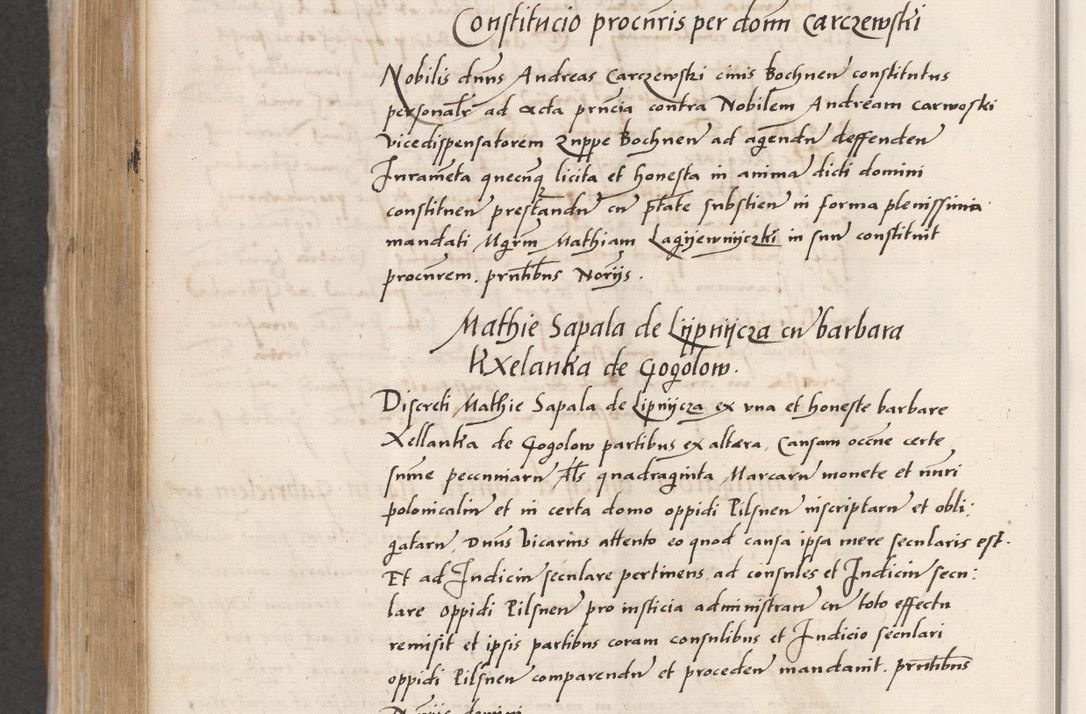 Constitucio procuris per domn Carczewski
Nobilis dnus Andreas Carczewski ciuis Bochnen constitutus
personalr ad acta prncia contra Nobilem Andream Carwoski
vicedispensatorem Zuppe Bochnen ad agendu deffenden
Iurameta quecnq licita et honesta in anima dicti domini
constituen prestandu cu ptate substien in forma plenissima
mandati Mgrm Mathiam Lagyewnyczki in suu constituit
procurem. prntibus Noriis.
Mathie Sapala de Lypnycza cu barbara
Kxelanka de Gogolow.
Discreti Mathie Sapala de Lipnycza ex vna et honeste barbare
Xellanka de Gogolow partibus ex altera, Causam occne certe
sume pecuniaru als quadraginta Marcaru monete et nuri
polonicaliu et in certa domo oppidi Pilsnen inscriptaru et obli:
gataru, Dnus Vicarius attento eo quod causa ipsa mere secularis est.
Et ad Iudiciu seculare pertinens ad consules et Iudiciu secu:
lare oppidi Pilsnen pro iusticia administran cu toto effectu
remisit et ipsis partibus coram consulibus et Iudicio seculari
oppidi Pilsnen comparendu et proceden mandauit. prntibus